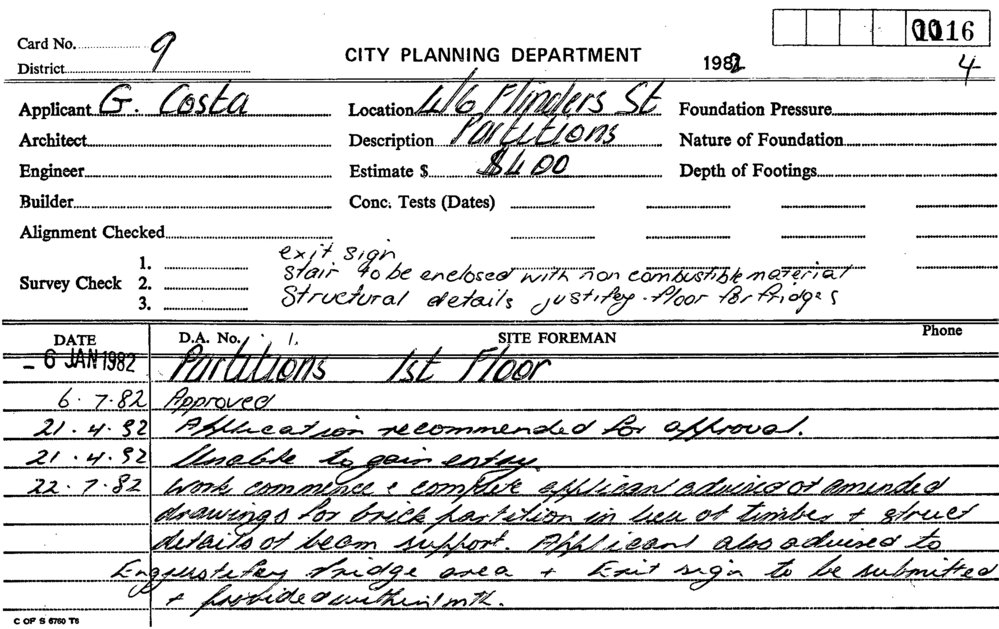 0016
Card No. 9
CITY PLANNING DEPARTMENT
1982
4
District
Applicant G. Costa
Location 46 Flinders St
Foundation Pressure
Architect
Description Partitions
Nature of Foundation
Engineer
Estimate $ $400
Depth of Footings
Builder
Conc. Tests (Dates)
Alignment Checked
exit sign
Survey Check 1. 2. 3.
Stair to be enclosed with non combustible material
Structural details justifey floor for fridges
DATE D.A. No. SITE FOREMAN Phone
- 6 JAN 1982 Partitions 1st Floor
6.7.82 Approved
21.4.82 Application recommended for approval.
21.4.82 Unable to gain entry.
22.7.82 Work commence & complete applicant advised of amended
drawings for brick partition in lieu of timber + struct
details of beam support. Applicant also advised to
Eng justifey fridge area + Exit sign to be submitted
+ provided within 1 mth.
C OF S 6760 T6